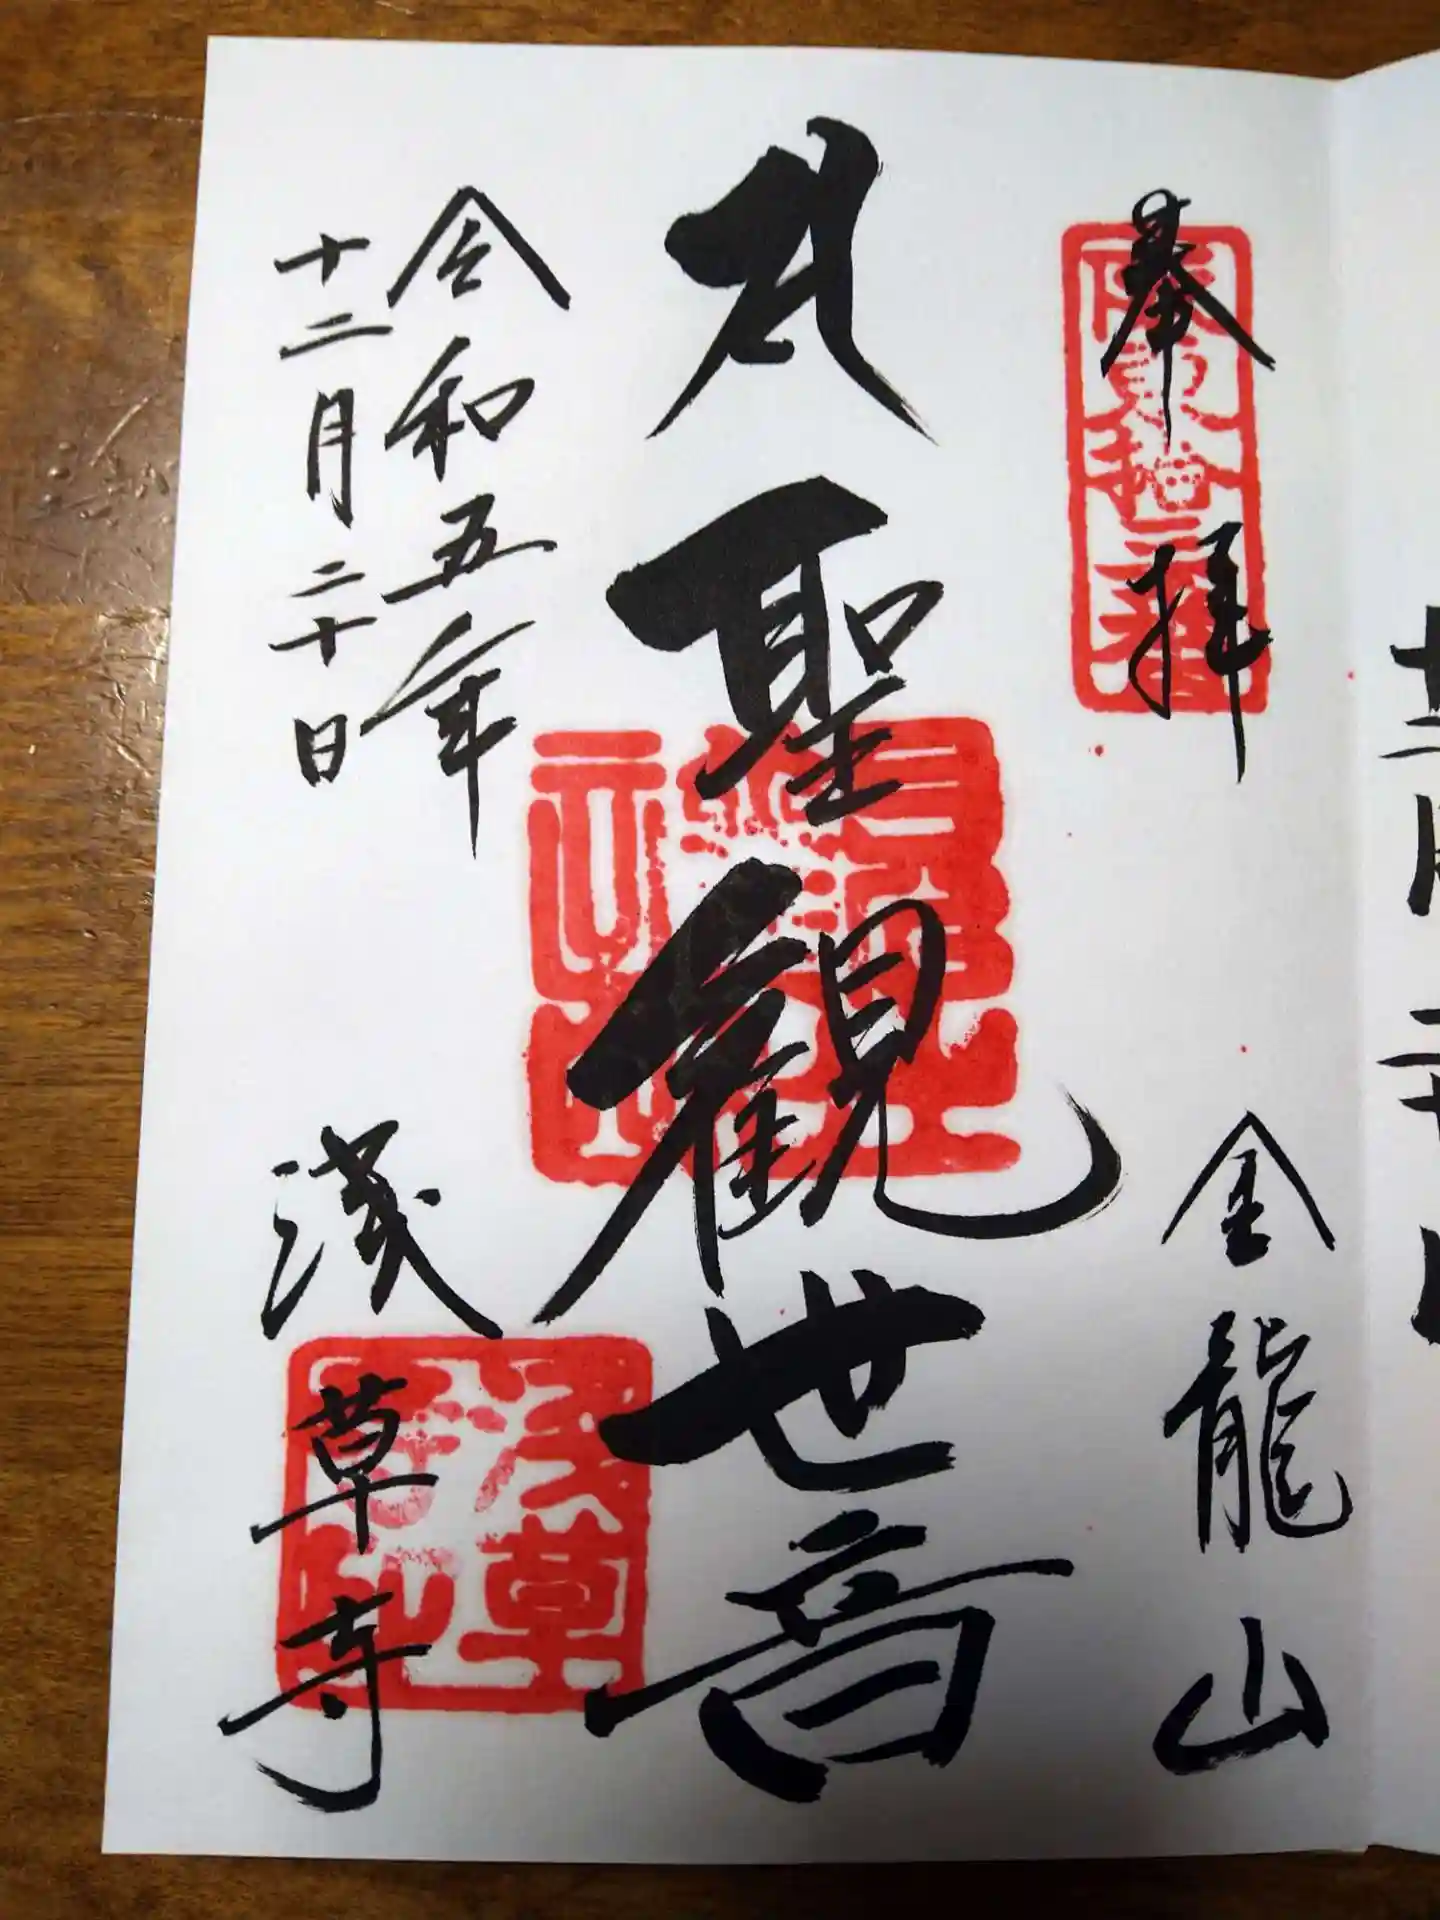 奉拝
阪東拾三番
金龍山
聖観世音
令和五年
十二月二十日
浅草寺
浅草寺印